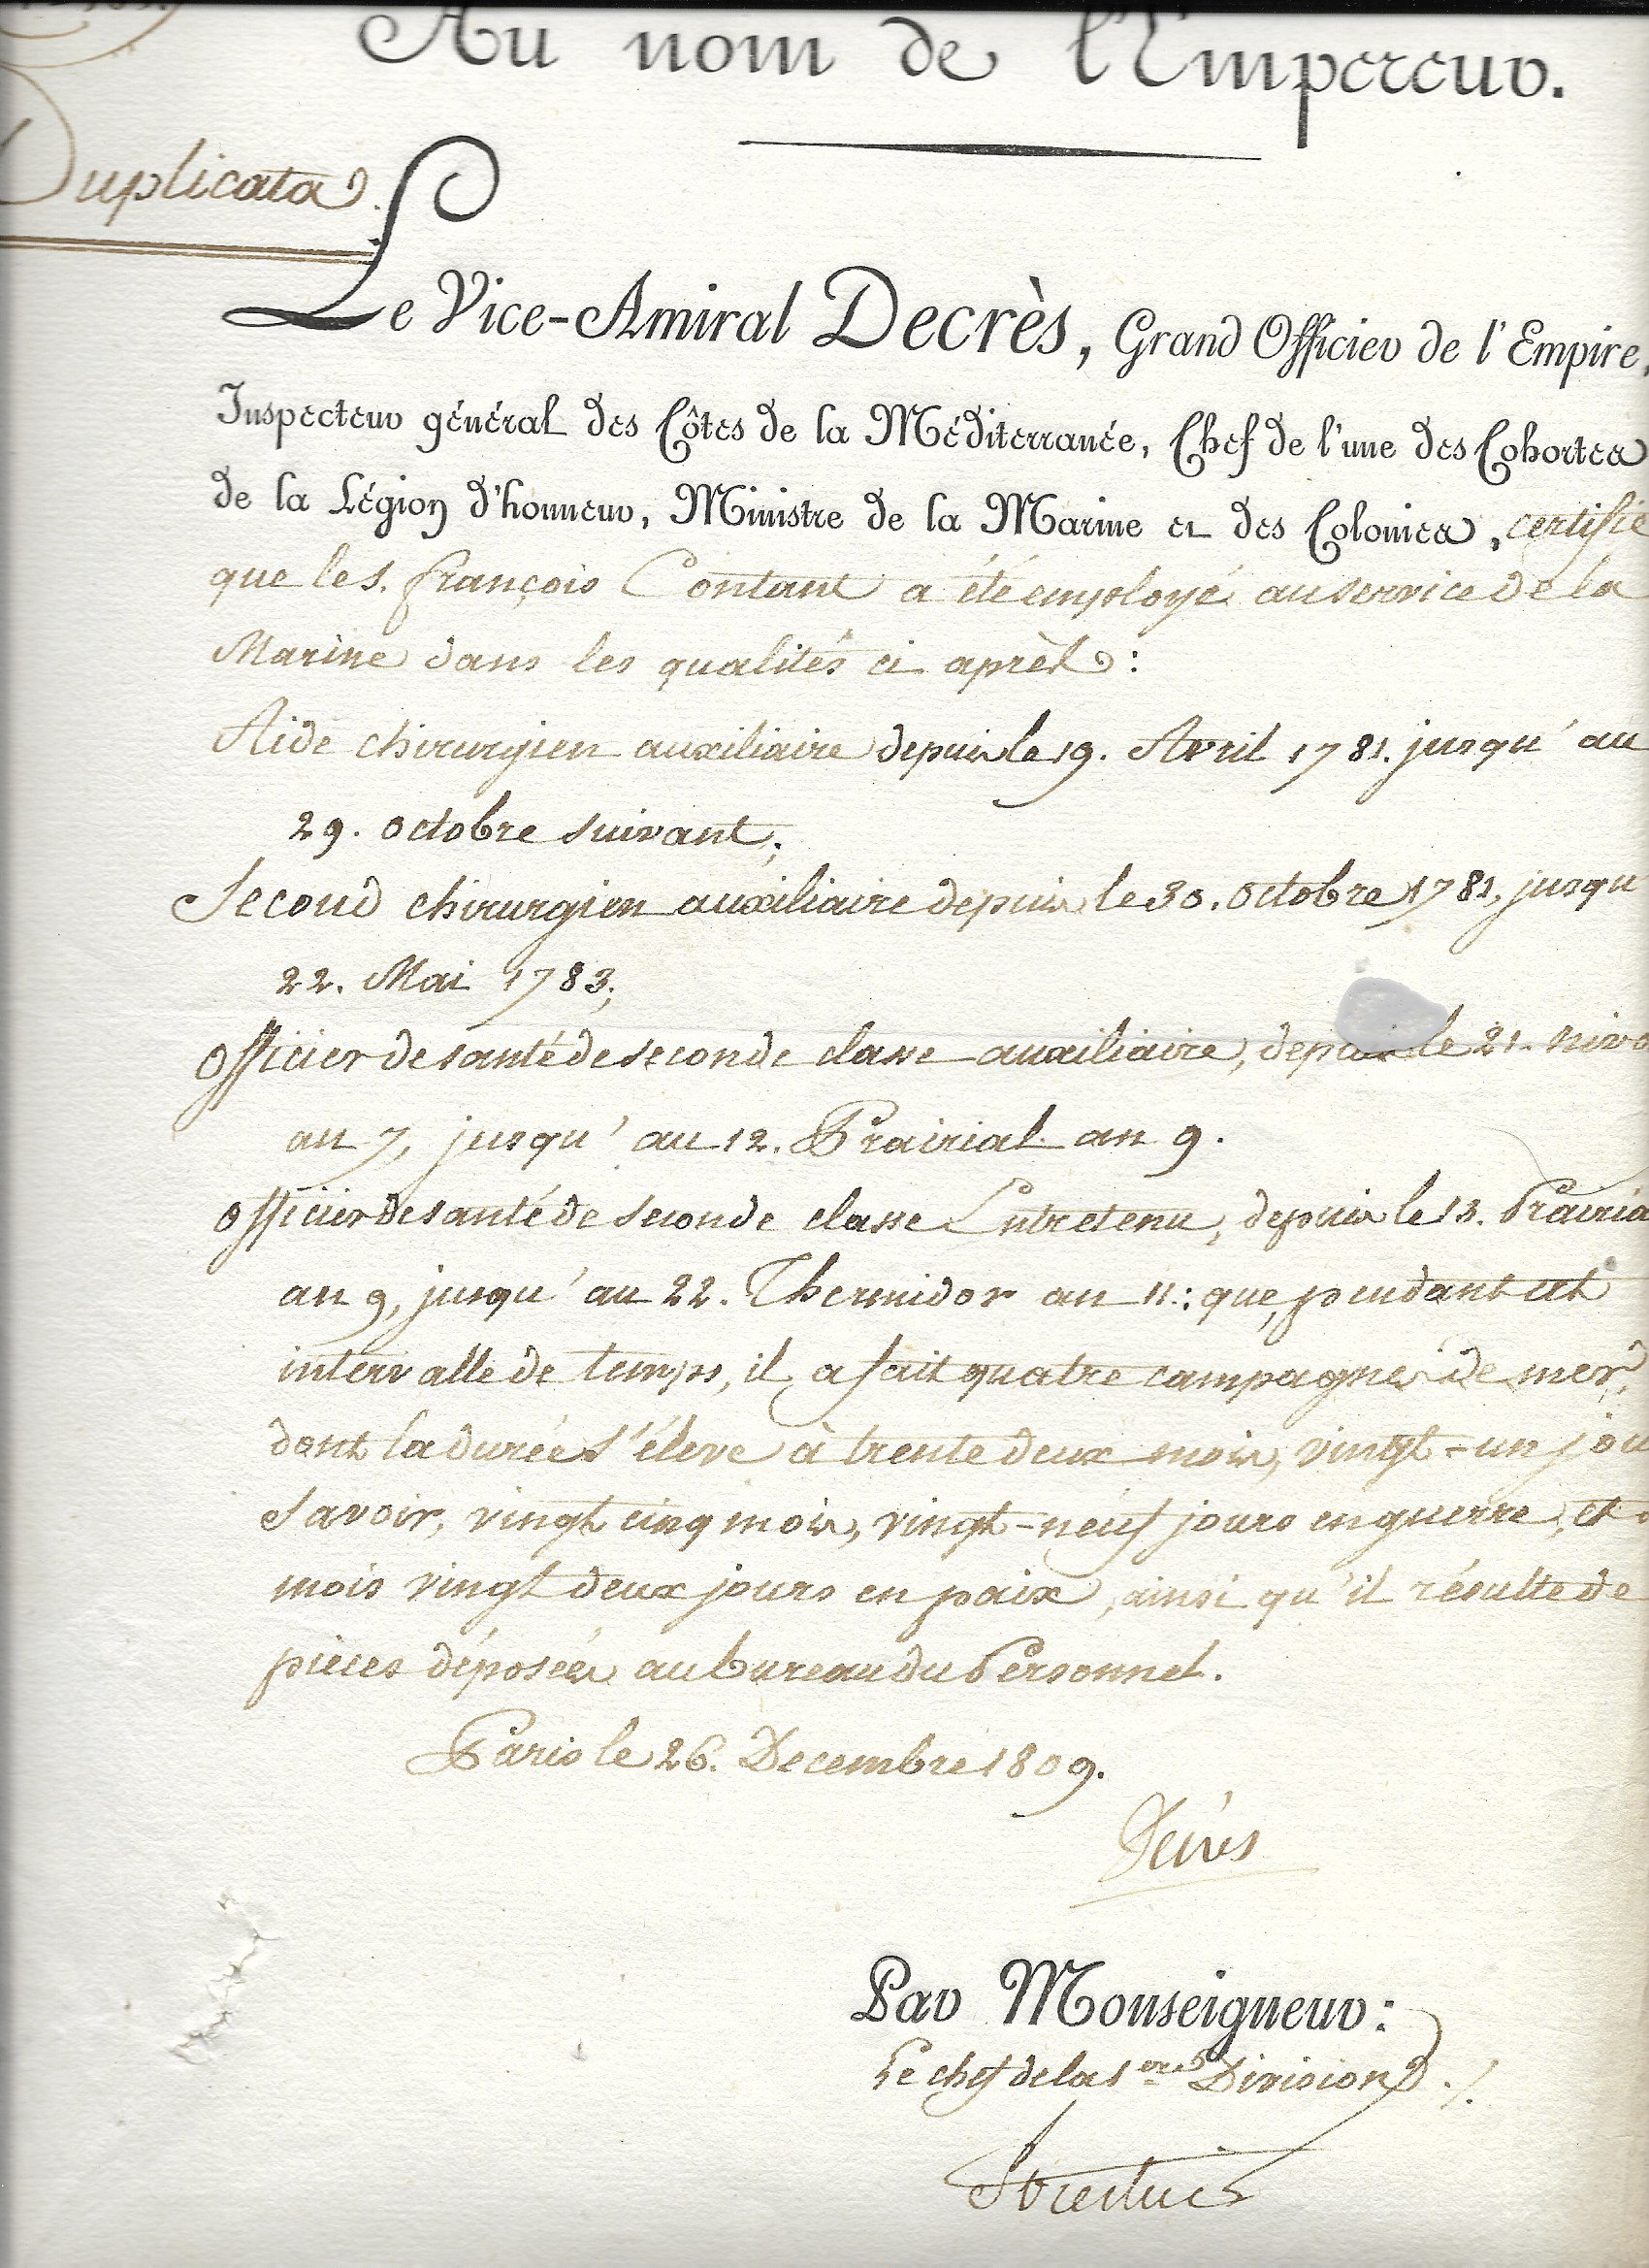 Au nom de l'Empereur.
Duplicata.
Le Vice-Amiral Decrès, Grand Officier de l'Empire,
Inspecteur général des Côtes de la Méditerranée, Chef de l'une des Cohortes
de la Légion d'honneur, Ministre de la Marine et des Colonies, certifie
que le S. François Contant a été employé au service de la
Marine dans les qualités ci après :
Aide chirurgien auxiliaire depuis le 19. Avril 1781. jusqu'au
29. octobre suivant;
Second chirurgien auxiliaire depuis le 30. Octobre 1781, jusqu
22. Mai 1783;
officier de santé de seconde classe auxiliaire, depuis le 21. nivo
an 7, jusqu'au 12. Prairial an 9.
officier de santé de seconde classe Entretenu, depuis le 13. Prairia
an 9, jusqu'au 22. Thermidor an 11 : que, pendant cet
intervalle de temps, il a fait quatre campagnes de mer,
dont la durée s'éleve à trente deux mois, vingt-un jou
Savoir, vingt cinq mois, vingt-neuf jours en guerre, et
mois vingt deux jours en paix, ainsi qu'il résulte de
pieces déposées au bureau du Personnel.
Paris le 26. Decembre 1809.
Decrès
Par Monseigneur :
Le chef de la 1ere Division ./.